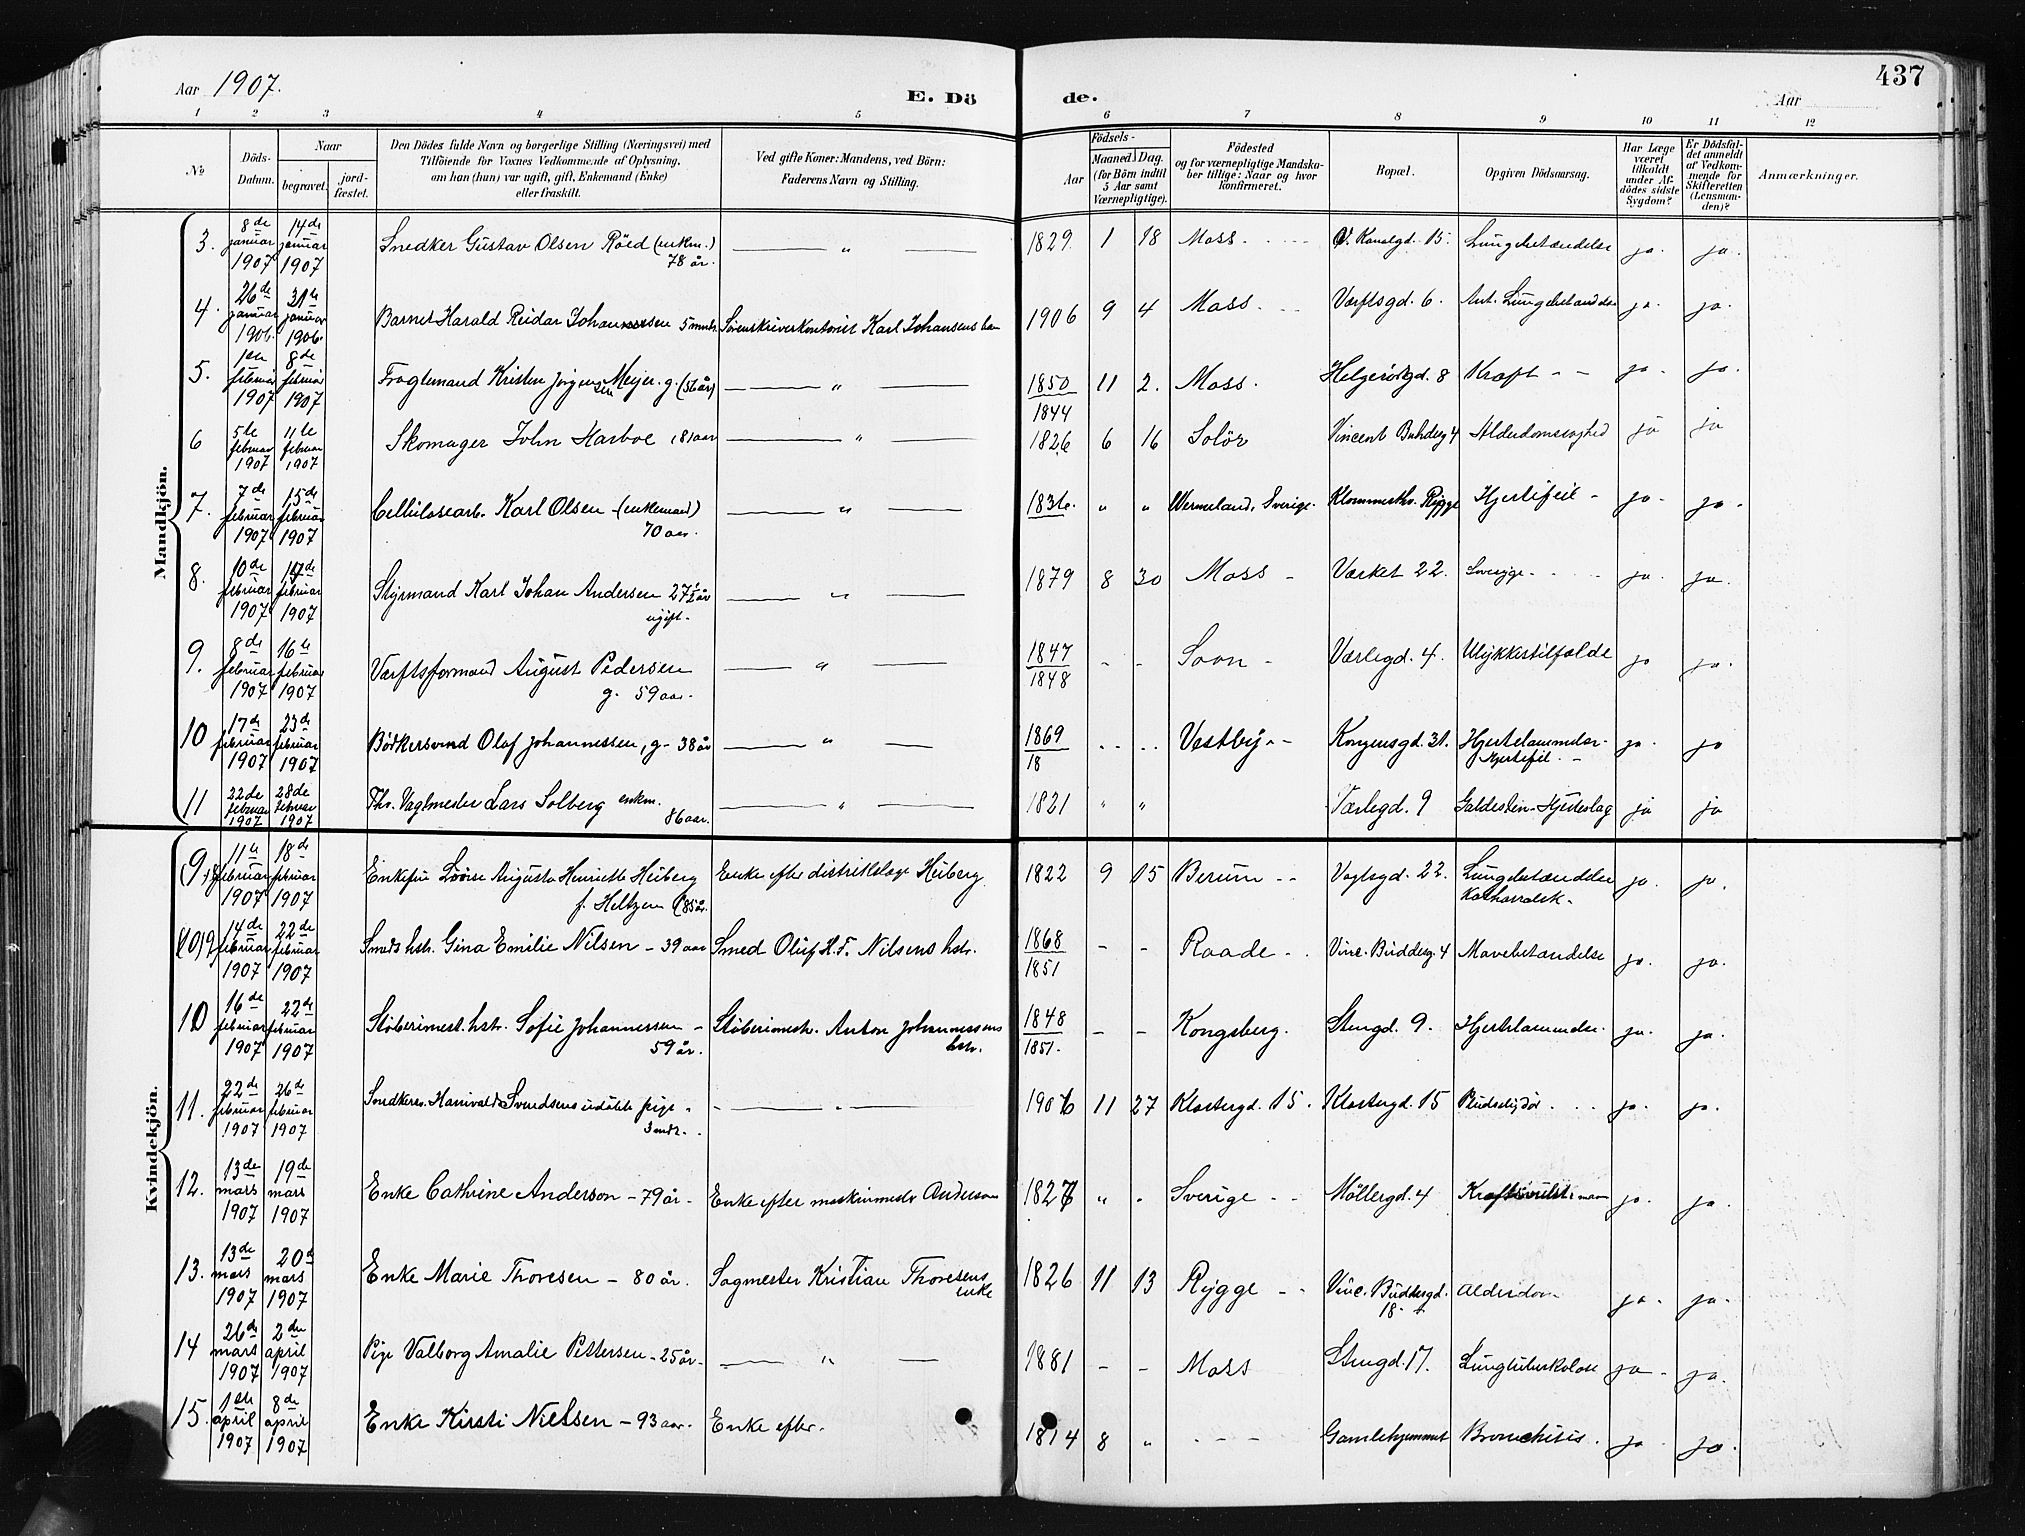 Aar 1907.
E. Dö
de.
Aar
437
1 2 3 4 5 6 7 8 9 10 11 12
№
Döds-
Datum.
Naar
begravet.
jord-
fæstet.
Den Dödes fulde Navn og borgerlige Stilling (Næringsvei) med
Tilföiende for Voxnes Vedkommende af Oplysning,
om han (hun) var ugift, gift, Enkemand (Enke)
eller fraskilt.
Ved gifte Koner: Mandens, ved Börn:
Faderens Navn og Stilling.
Födsels-
Aar
Maaned.
Dag.
(for Börn indtil
5 Aar samt
Værnepligtige).
Födested
og for værnepligtige Mandska-
ber tillige: Naar og hvor
konfirmeret.
Bopæl.
Opgiven Dödsaarsag.
Har Læge
været
tilkaldt
under Af-
dödes sidste
Sygdom?
Er Dödsfal-
det anmeldt
af Vedkom-
mende for
Skifteretten
(Lensman-
den)?
Anmærkninger.
Mandkjön.
3. 8de januar 1907 14de januar 1907 Snedker Gustav Olsen Röed (enkm.) 78 år. " 1829. 1 18 Moss. V. Kanalgd. 15. Lungebetændelse ja. ja.
4. 26de januar 1906. 31te januar 1906. Barnet Harald Reidar Johannesen 5 mndr. Sorenskriverkontorist Karl Johansens 1906 9 4 Moss. Værftsgd. 6. Lungebetændelse ja. ja.
5. 1ste februar 1907 8de februar 1907 Fragtemand Kristen Jørgensen Meyer. g. (56 år) " 1850 1844 11 2. Moss. Helgerödgd. 8 Kræft ja. ja.
6 5te februar 1907 11te februar 1907 Skomager John Harboe 81 aar " 1826 6 16 Solör Vincent Buddesg 4 Alderdomssvaghed ja ja
7. 7de februar 1907 15de februar 1907 Cellulosearb. Karl Olsen (enkemand) 70 aar. " 1836. " " Wermeland, Sverige. Rygge Hjertefeil ja. ja.
8. 10de februar 1907 17de februar 1907 Styrmand Karl Johan Andersen 27½ år ugift. " 1879 8 30 Moss Værket 22. ja. ja.
9. 8de februar 1907 16de februar 1907 Værftsformand August Pedersen g. 59 aar. " 1847 1848 - - Soon Værlegd. 4. Ulykkestilfælde ja ja.
10 17de februar 1907 23de februar 1907 Bödkersvend Olaf Johannessen, g. 38 år " 1869 18 Vestby Kongensgd. 31. Hjertelammelse. Hjertefeil. ja. ja
11 22de februar 1907 28de februar 1907 Fhv. Vagtmester Lars Solberg enkm. 86 aar. " 1821 " " Værlegd. 9 Galdesten - Hjerteslag ja ja
Kvindekjön.
9. 11te februar 1907 18de februar 1907 Enkefru Lovise Augusta Henriette Heiberg f. Heltzen (85 år. Enke efter distriktslæge Heiberg. 1822 9 15 Berum Vogtsgd. 22. Lungebetændelse Katharralsk. ja. ja.
14de februar 1907 22de februar 1907 Smeds hstr. Gina Emilie Nilsen - 39 aar Smed Oluf H. F. Nilsens hstr. 1868 1851 - - Raade Vinc. Buddesg. 4 Mavebetændelse ja. ja.
10 16de februar 1907 22de februar 1907 Støberimest. hstr. Sofie Johannessen - 59 år. Støberimestr. Anton Johannessens hstr. 1848 1851. - - Kongsberg. Stengd. 9. Hjertelammelse. ja. ja.
11. 22de februar 1907 26de februar 1907 Snedkersv. Harrivald Svendsens udöbte pige 3 mdr. " 1906 11 27 Klostergd. 15. Klostergd. 15 Pludselig död ja. ja.
12. 13de mars 1907 19de mars 1907 Enke Cathrine Anderson - 79 år. Enke efter maskinmestr Anderson 1827 " " Sverige Möllergd. 4 ja. ja.
13. 13de mars 1907 20de mars 1907 Enke Marie Thoresen - 80 år. Sagmester Kristian Thoresens enke 1826 11 13 Rygge Vinc. Buddesgd. 18 Alderdom ja. ja.
14 26de mars 1907 2den april 1907 Pige Valborg Amalie Pettersen - 25 år. " 1881 - - Moss Stengd. 17. Lungetuberkulose ja. ja.
15. 1ste april 1907 8de april 1907 Enke Kirsti Nielsen - 93 aar. Enke efter. 1814 8 " - - - Gamlehjemmet Bronchitis. ja ja.